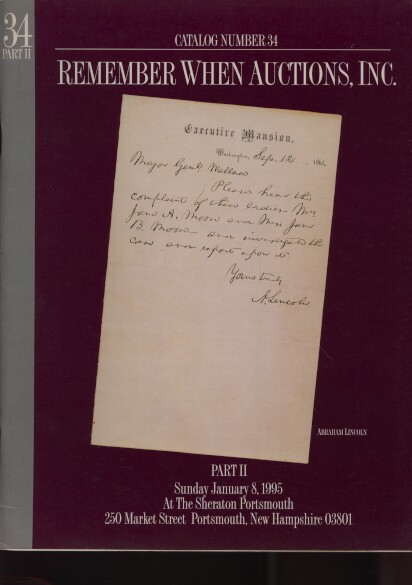 34
PART II
CATALOG NUMBER 34
REMEMBER WHEN AUCTIONS, INC.
Executive Mansion,
Washington, Sep. 12, 186
Major Genl Wallace
Please hear the
complaint of these ladies - Mrs
Jane A. Moore and Miss Jane
B. Moore - and investigate the
case and report upon it.
Yours truly
A. Lincoln
ABRAHAM LINCOLN
PART II
Sunday January 8, 1995
At The Sheraton Portsmouth
250 Market Street Portsmouth, New Hampshire 03801